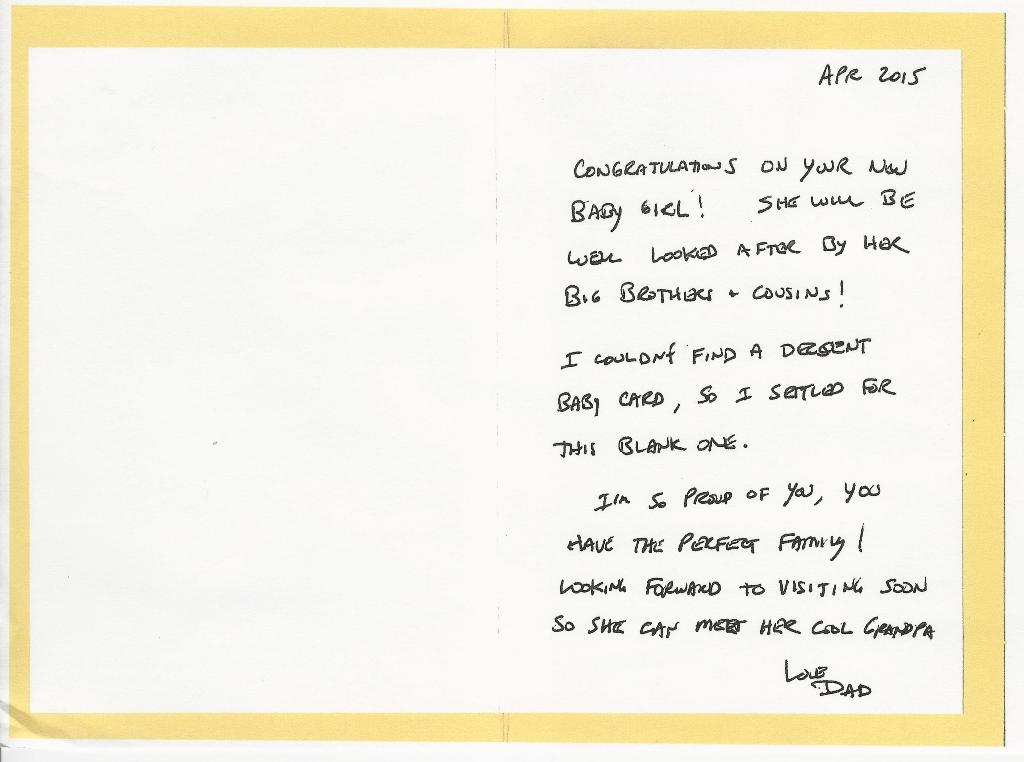 APR 2015
CONGRATULATIONS ON YOUR NEW
BABY GIRL! SHE WILL BE
WELL LOOKED AFTER BY HER
BIG BROTHERS + COUSINS!
I COULDN'T FIND A DECENT
BABY CARD, SO I SETTLED FOR
THIS BLANK ONE.
I'M SO PROUD OF YOU, YOU
HAVE THE PERFECT FAMILY!
LOOKING FORWARD TO VISITING SOON
SO SHE CAN MEET HER COOL GRANDPA
LOVE
DAD